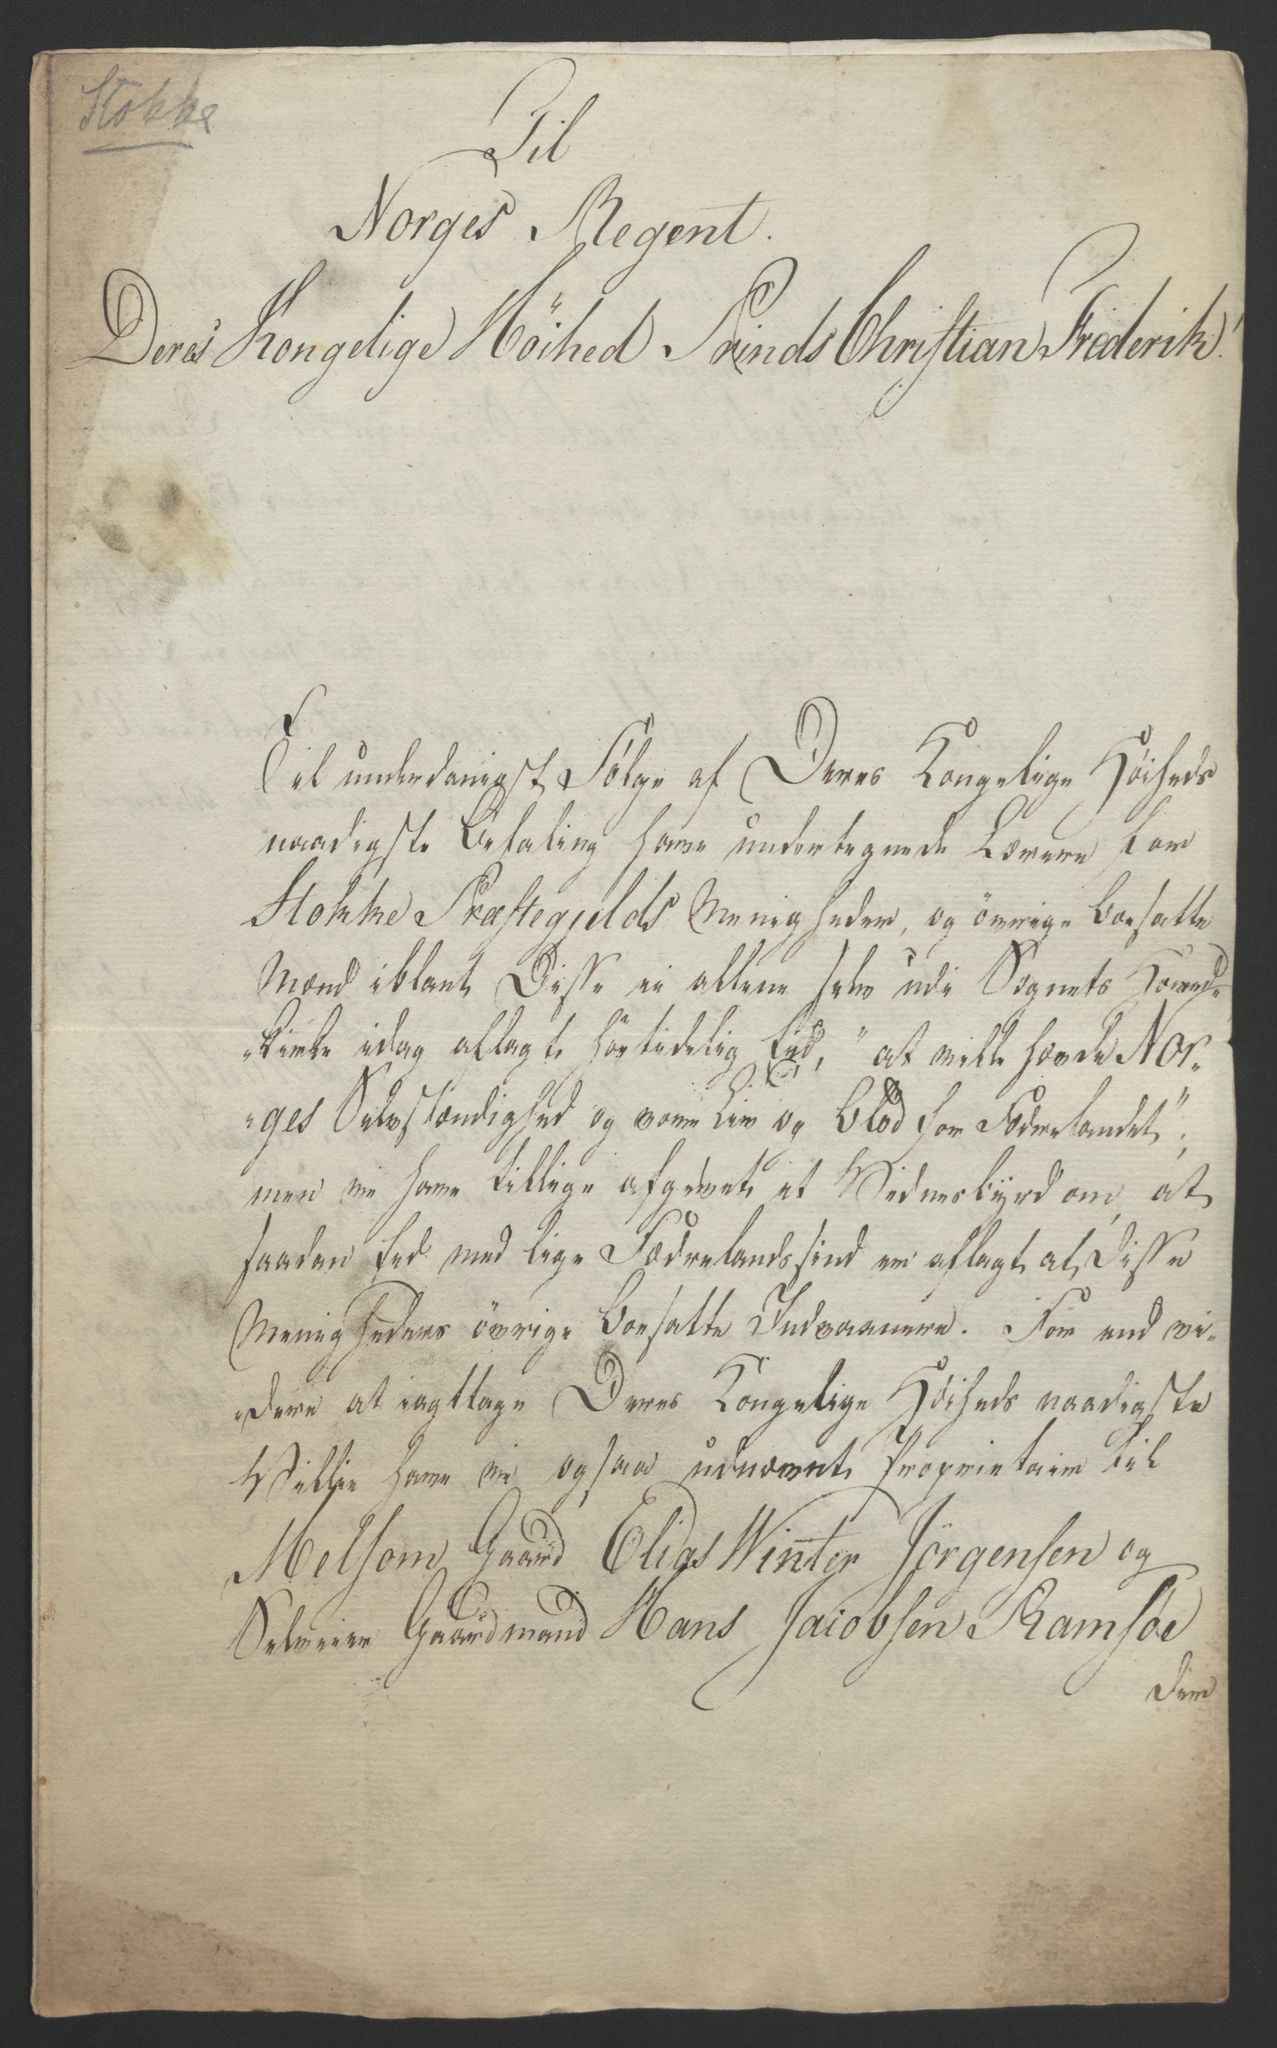 Stokke
Til
Norges Regent.
Deres Kongelige Höihed Prinds Christian Frederik!
Til underdanigst Fölge af Deres Kongelige Höiheds
naadigste Befaling have undertegnede Lærere for
Stokke Præstegjelds Menigheder, og övrige boesatte
Mænd iblant Disse ei allene selv udi Sognets Hoved-
-kirke idag aflagt höitidelig Eed, "at ville hævde Nor-
-ges Selvstændighed og vove Liv og Blod for Födrelandet";
men vi have tillige afgivet et Vidnesbyrd om, at
saadan Eed med lige Fædrelandssind er aflagt af Disse
Menigheders övrige boesatte Indvaanere. For end vi-
-dere at iagttage Deres Kongelige Höiheds naadigste
Villie have vi ogsaa udnævnt Proprietair til
Melsom Gaard Elias Winter Jörgensen og
Selveier Gaardmand Hans Jacobsen Ramsöe
Der